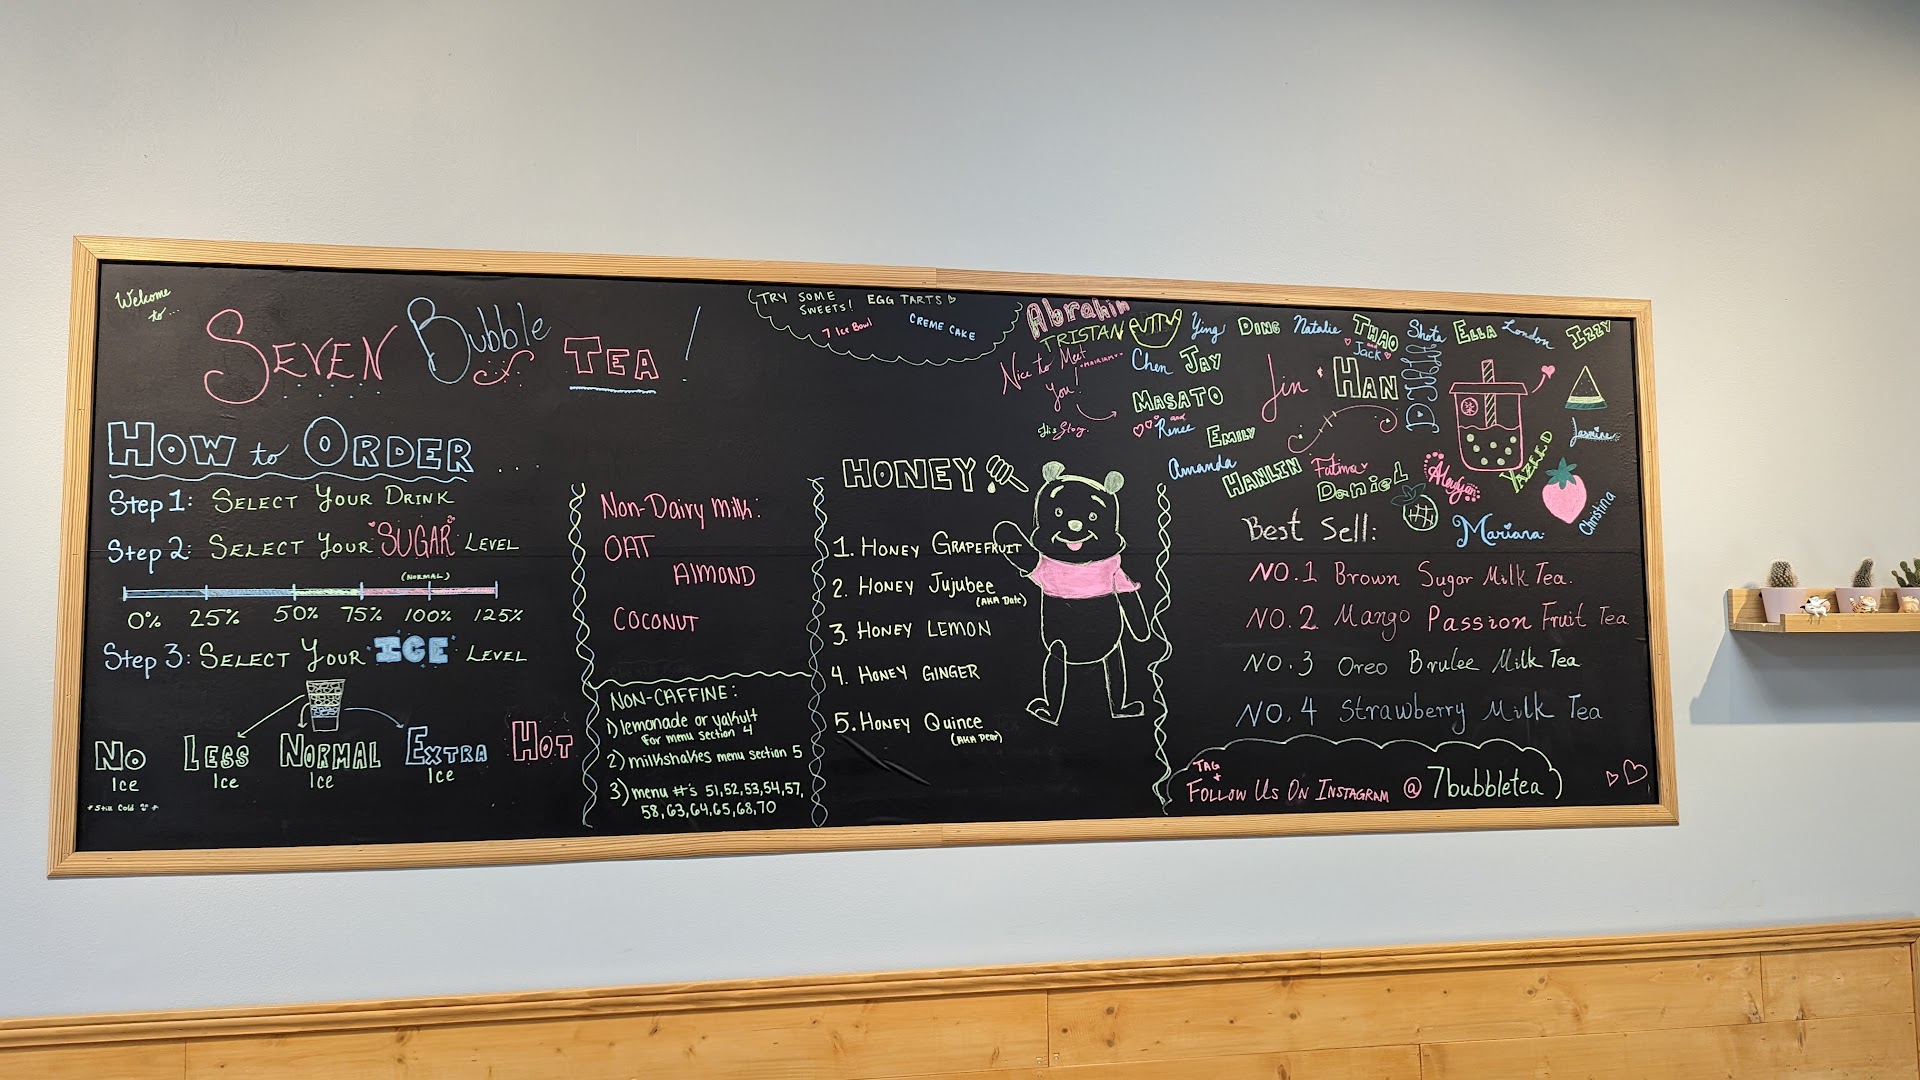 Welcome
to...
SEVEN Bubble TEA!
HOW to ORDER....
Step 1: SELECT YOUR DRINK
Step 2: SELECT YOUR SUGAR LEVEL
(NORMAL)
0% 25% 50% 75% 100% 125%
Step 3: SELECT YOUR ICE LEVEL
NO Ice
LESS Ice
NORMAL Ice
EXTRA Ice
HOT
*Still Cold
Non-Dairy Milk:
OAT
AlMOND
COCONUT
NON-CAFFINE:
1) lemonade or yakult
for menu section 4
2) milkshakes menu section 5
3) menu #'s 51,52,53,54,57,
58,63,64,65,68,70
(TRY SOME
SWEETS! EGG TARTS
7 Ice Bowl CREME CAKE
HONEY
1. HONEY GRAPEFRUIT
2. HONEY Jujubee
(AKA Date)
3. HONEY LEMON
4. HONEY GINGER
5. HONEY Quince
(AKA Pear)
Abrahim
TRISTAN
Nice to Meet
You!
His Story.
Ying
DING
Natalie
THAO
and
Jack
Shota
ELLA
London
IZZY
Chen
JAY
Jin
HAN
MASATO
and
Renee
EMILY
Amanda
HANLIN
Fatima
DanieL
YAZEED
Jasmine
Christina
Mariana
柒
Best Sell:
NO.1 Brown Sugar Milk Tea.
NO.2 Mango Passion Fruit Tea
NO.3 Oreo Brulee Milk Tea
NO.4 Strawberry Milk Tea
TAG
+
FOLLOW US ON INSTAGRAM @ 7bubbletea)